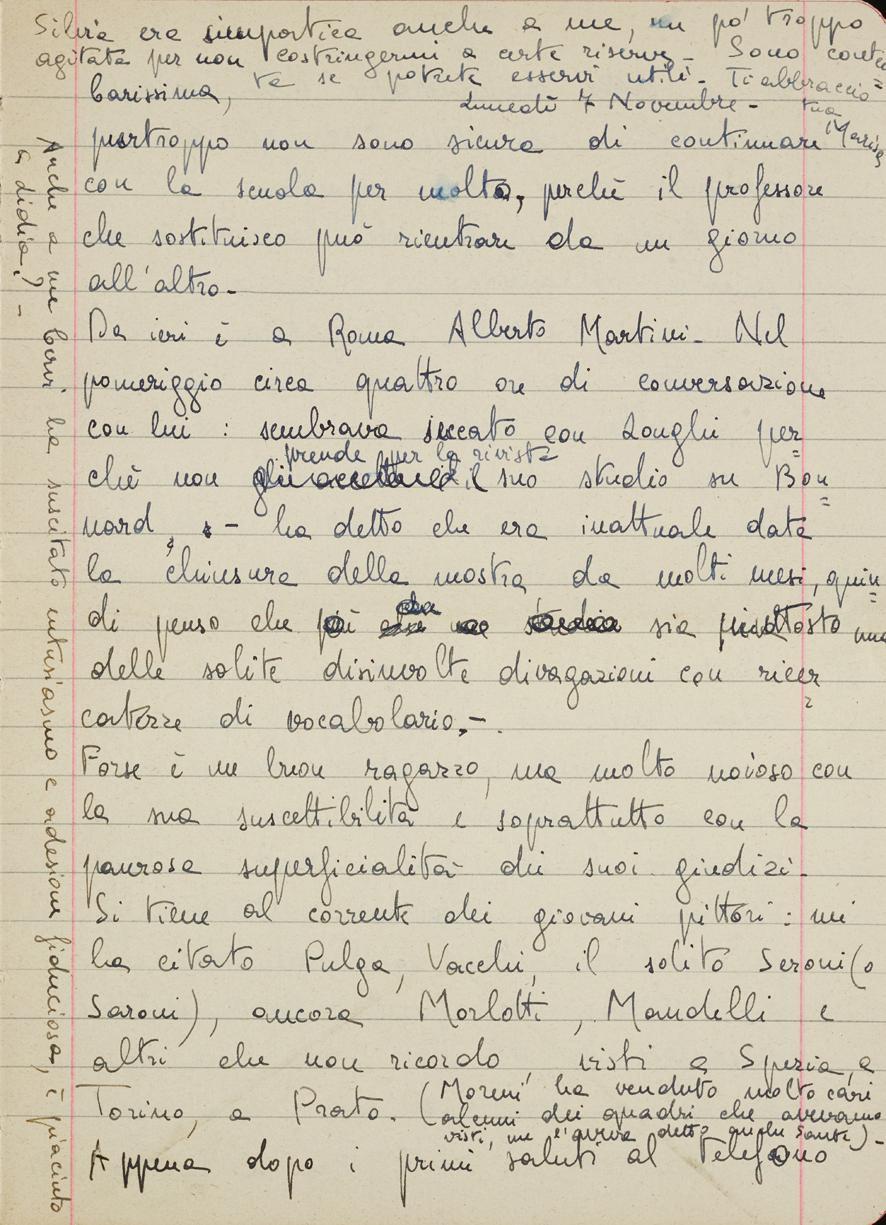 Silvia era simpatica anche a me, un po' troppo
agitata per non costringermi a certe riserve - Sono conten=
ta se potete esservi utili - Ti abbraccio
tua
Marisa
Lunedì 7 Novembre -
Carissima,
purtroppo non sono sicura di continuare
con la scuola per molto, perchè il professore
che sostituisco può rientrare da un giorno
all'altro -
Da ieri è a Roma Alberto Martini - Nel
pomeriggio circa quattro ore di conversazione
con lui : sembrava seccato con Longhi per=
chè non prende per la rivista il suo studio su Bon=
nard, - ha detto che era inattuale data
la chiusura della mostra da molti mesi, quin=
di penso che sia piuttosto una
delle solite disinvolte divagazioni con ricer=
catezze di vocabolario, - .
Forse è un buon ragazzo, ma molto noioso con
la sua suscettibilità e soprattutto con la
paurosa superficialità dei suoi giudizi -
Si tiene al corrente dei giovani pittori : mi
ha citato Pulga, Vacchi, il solito Seroni (o
Saroni), ancora Morlotti, Mandelli e
altri che non ricordo, visti a Spezia, a
Torino, a Prato. (Moreni ha venduto molto cari
alcuni dei quadri che avevamo
visti, me l'aveva detto anche Sante) -
Appena dopo i primi saluti al telefono
Anche a me Cervi ha suscitato entusiasmo e adesione fiduciosa, è piaciuto
a didia? -